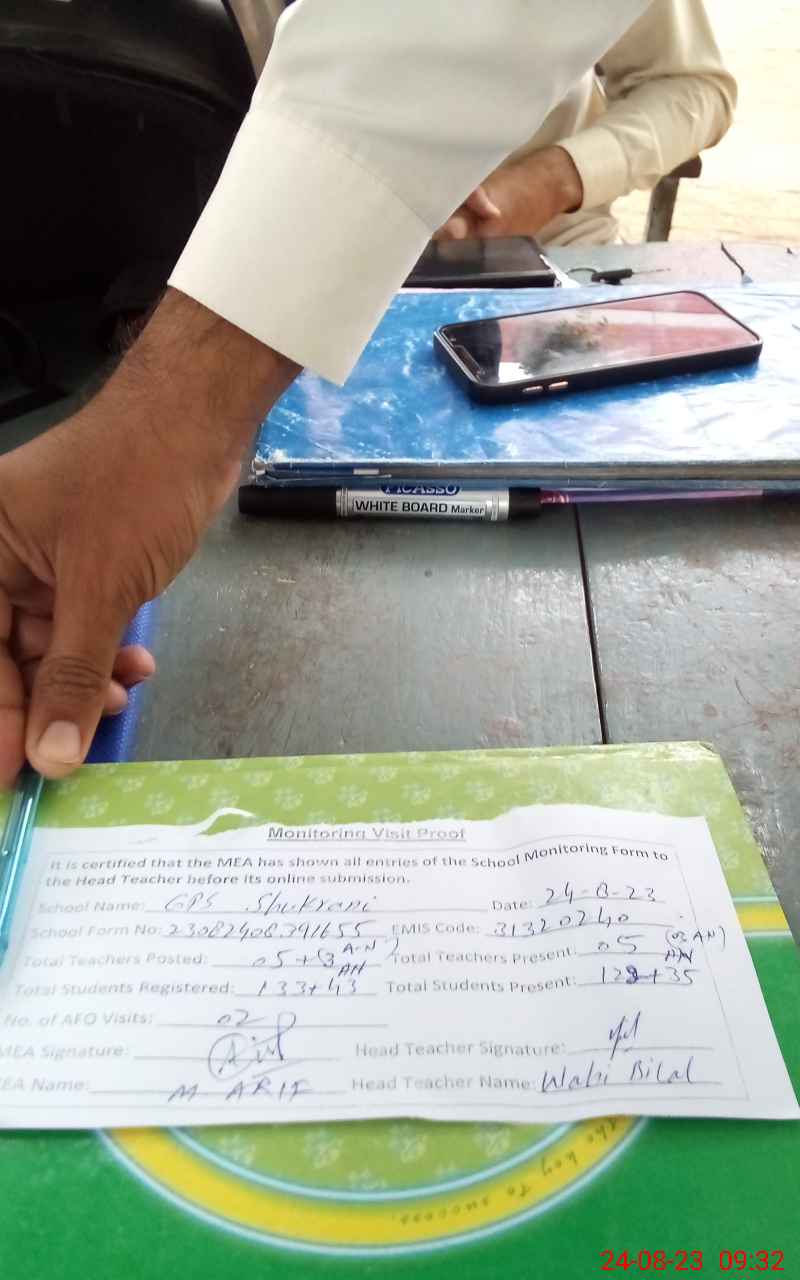 PICASSO
WHITE BOARD Marker
Monitoring Visit Proof
It is certified that the MEA has shown all entries of the School Monitoring Form to
the Head Teacher before its online submission.
School Name: GPS Shukrani Date: 24-8-23
School Form No: EMIS Code: 31320240
Total Teachers Posted: 05+03 A-N Total Teachers Present: 05 (03 AN)
Total Students Registered: 133+43 Total Students Present: +35
No. of AEO Visits: 02
MEA Signature: Head Teacher Signature:
EA Name: M ARIF Head Teacher Name: Bilal
the key to success.
24-08-23 09:32